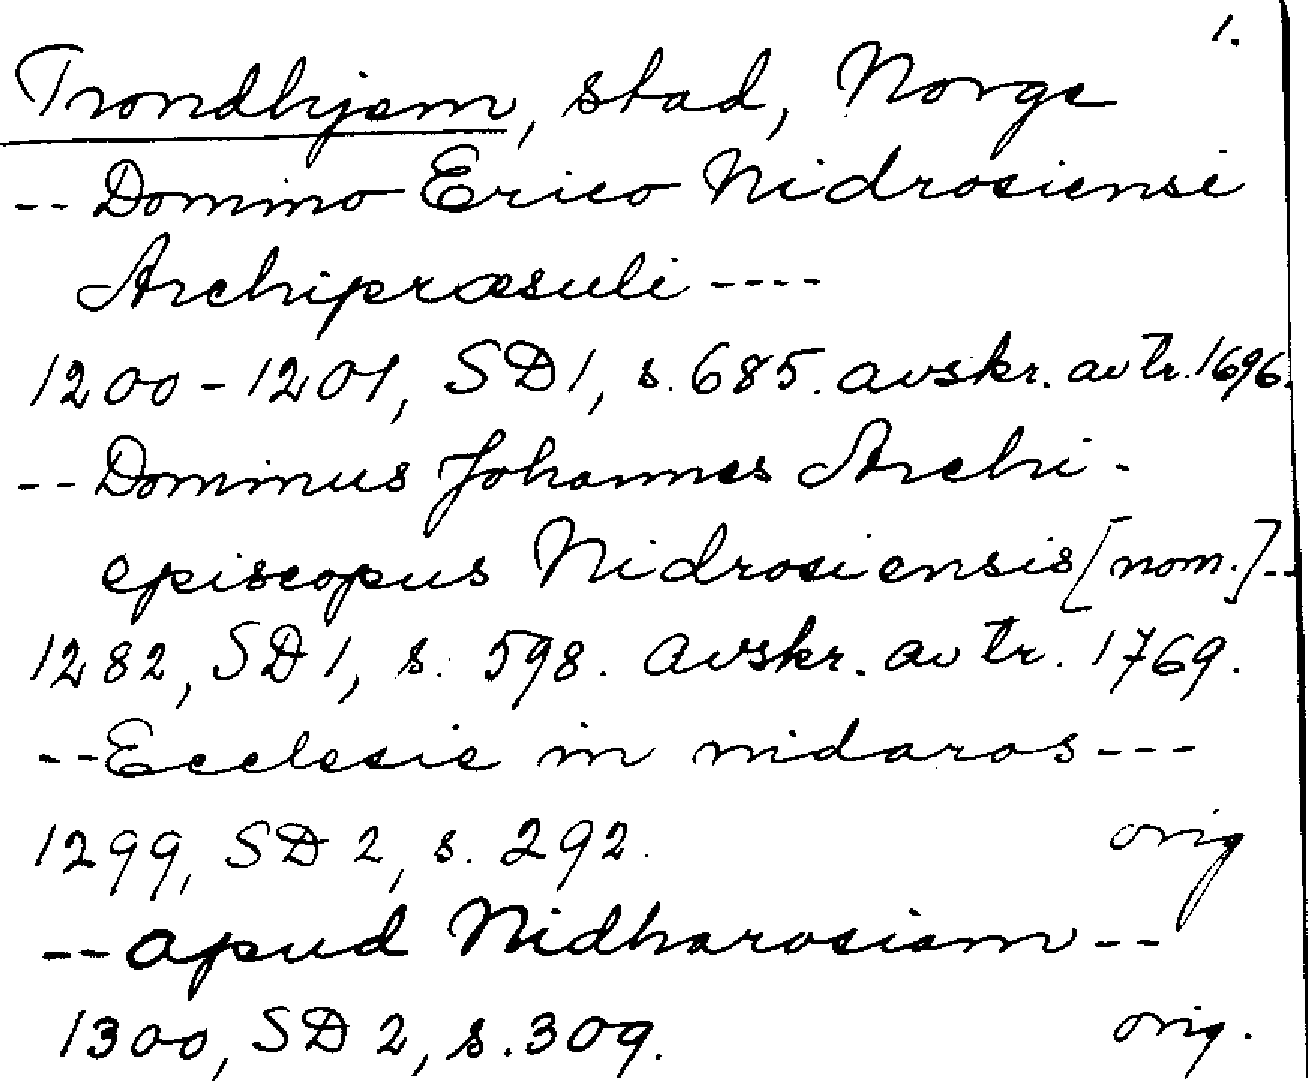 1.
Trondhjem, stad, Norge
-- Domino Erico Nidrosiensi
Archipræsuli ----
1200-1201, SD1, s. 685. avskr. av tr. 1696.
-- Dominus Johannes Archi-
episcopus Nidrosiensis [nom.]--
1282, SD1, s. 598. avskr. av tr. 1769.
-- Ecclesie in nidaros ---
1299, SD2, s. 292. orig
-- apud Nidharosiam --
1300, SD2, s. 309. orig.